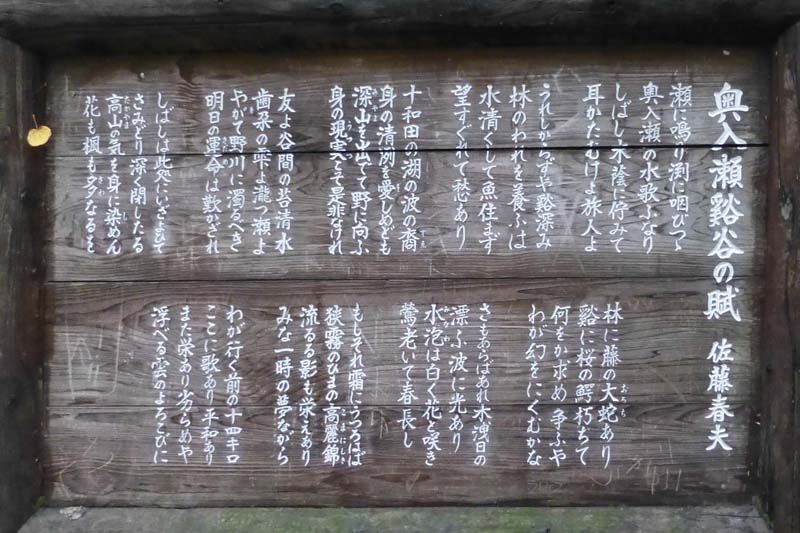 奥入瀬谿谷の賦
佐藤春夫
瀬に鳴り渕に咽びつゝ
奥入瀬の水歌ふなり
しばし木陰に佇みて
耳かたむけよ旅人よ
うれしからずや谿深み
林のわれを養ふは
水清くして魚住まず
望すぐれて愁あり
十和田の湖の波の裔
すえ
身の清冽を愛しめども
深山を出でて野に向ふ
身の現実を是非なけれ
友よ谷間の苔清水
歯朶の雫よ瀧つ瀬よ
やがて野川に濁るべき
明日の運命は歎かざれ
しばしは此処にいざよひて
さみどり深く閉したる
高山の気を身に染めん
たかやま
花も楓も多なるを
さわ
林に藤の大蛇あり
おろち
谿に桜の鰐朽ちて
何をか求め争ふや
わが幻をにくむかな
さもあらばあれ木洩日の
漂ふ波に光あり
水泡は白く花と咲き
鶯老いて春長し
もしそれ霜にうつろはば
狭霧のひまの高麗錦
こまにしき
流るる影も栄えあり
みな一時の夢ながら
わが行く前の十四キロ
ここに歌あり平和あり
また栄あり劣らめや
浮べる雲のよろこびに